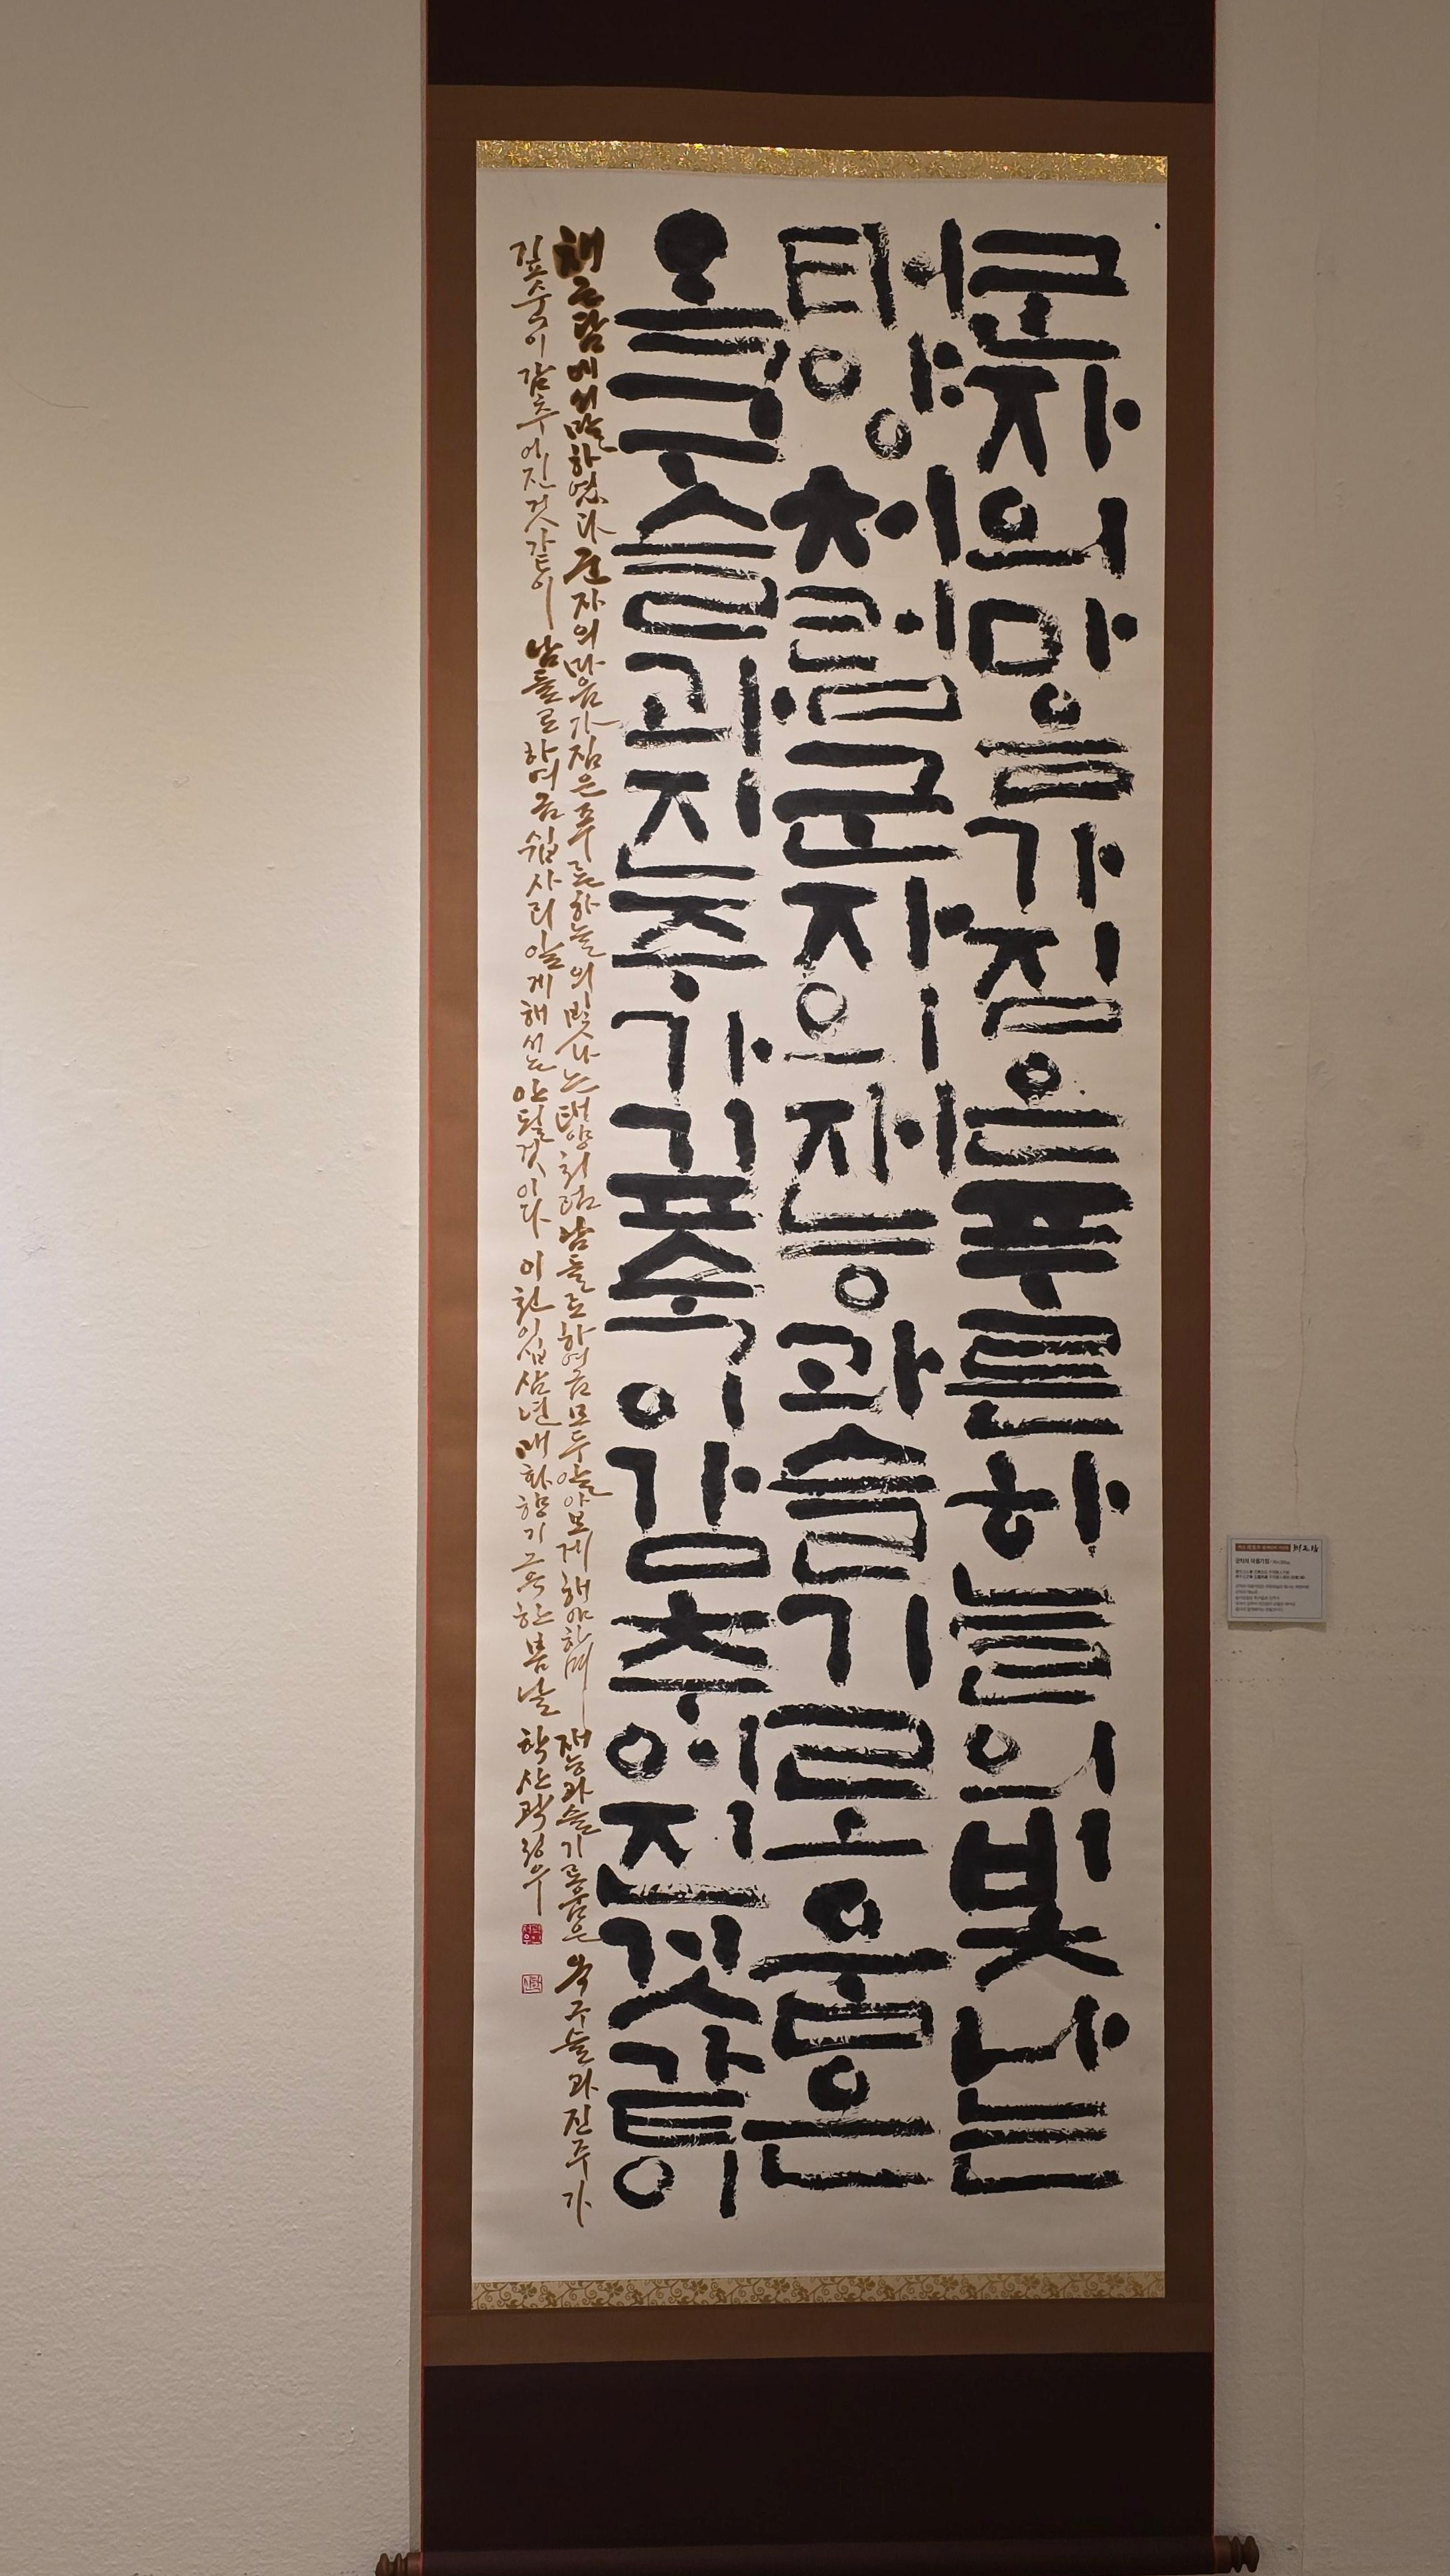 군자의마음가짐은푸른하늘의빛나는
태양처럼군자의재능과슬기로움은
옥구슬과진주가깊숙이감추어진것같이
채근담에서말하였다 군자의마음가짐은푸른하늘의빛나는태양처럼남들로하여금모두알아보게해야하며 재능과슬기로움은옥구슬과진주가
깊숙이감추어진것같이 남들로하여금쉽사리알게해서는안될것이다 이천이십삼년매화향기그윽한봄날 학산곽정우
군자의 마음가짐